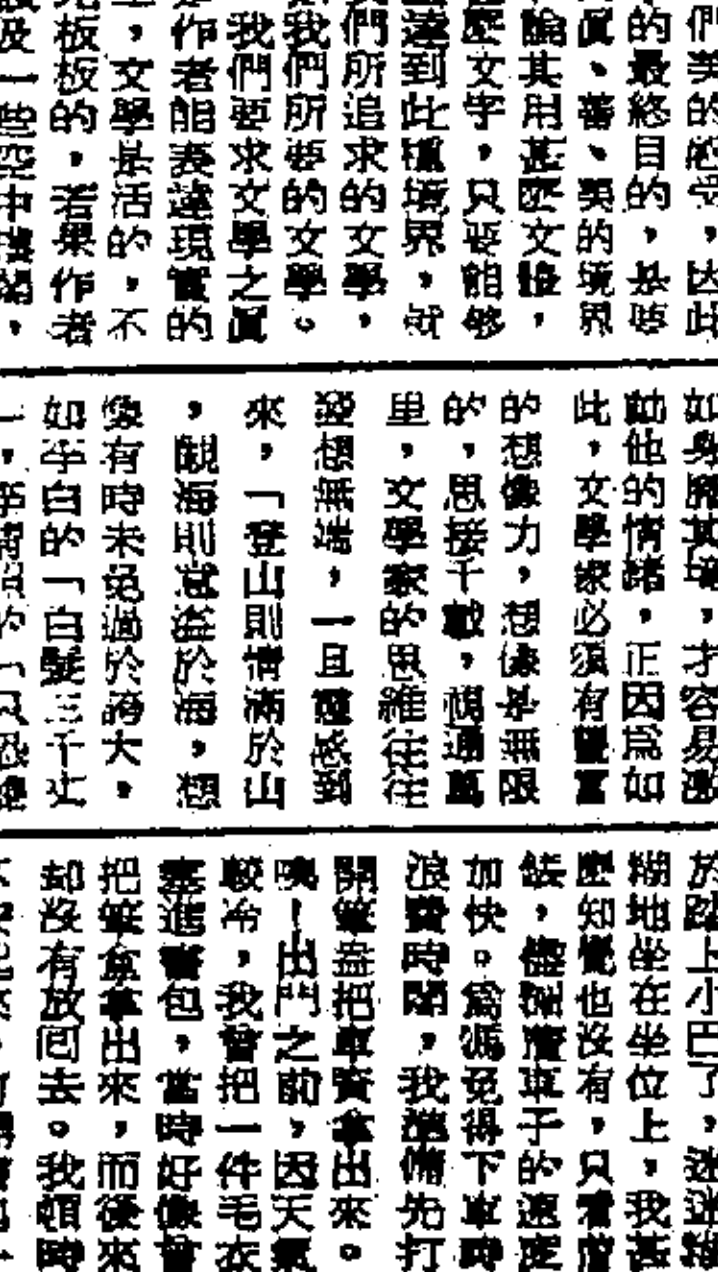 們美的感受，因此
的最終目的，是要
眞、善、美的境界
論其用甚麽文體，
麽文字，只要能够
達到此種境界，就
們所追求的文學，
我們所要的文學。
我們要求文學之眞
作者能表達現實的
，文學是活的，不
板板的，若果作者
及一些空中樓閣，
如身歷其境，才容易激
動他的情緒，正因爲如
此，文學家必須有豐富
的想像力，想像是無限
的，思接千載，視通萬
里，文學家的思維往往
思想無端，一旦靈感到
來，「登山則情滿於山
，觀海則意溢於海，想
像有時未免過於誇大，
如李白的「白髮三千丈
於踏上小巴了，迷迷糊
糊地坐在坐位上，我甚
麽知覺也沒有，只看着
裝，儘催着車子的速度
加快。爲免得下車時
浪費時間，我準備先打
開筆盒把車資拿出來。
咦！出門之前，因天氣
較冷，我曾把一件毛衣
塞進書包，當時好像曾
把筆盒拿出來，而後來
却沒有放回去。我頓時